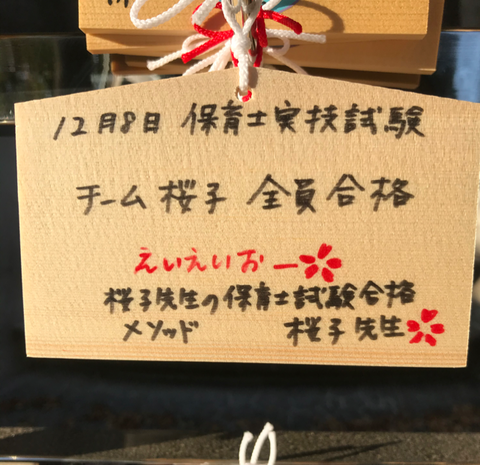 12月8日 保育士実技試験
チーム桜子 全員合格
えいえいおー
桜子先生の保育士試験合格
メソッド 桜子先生